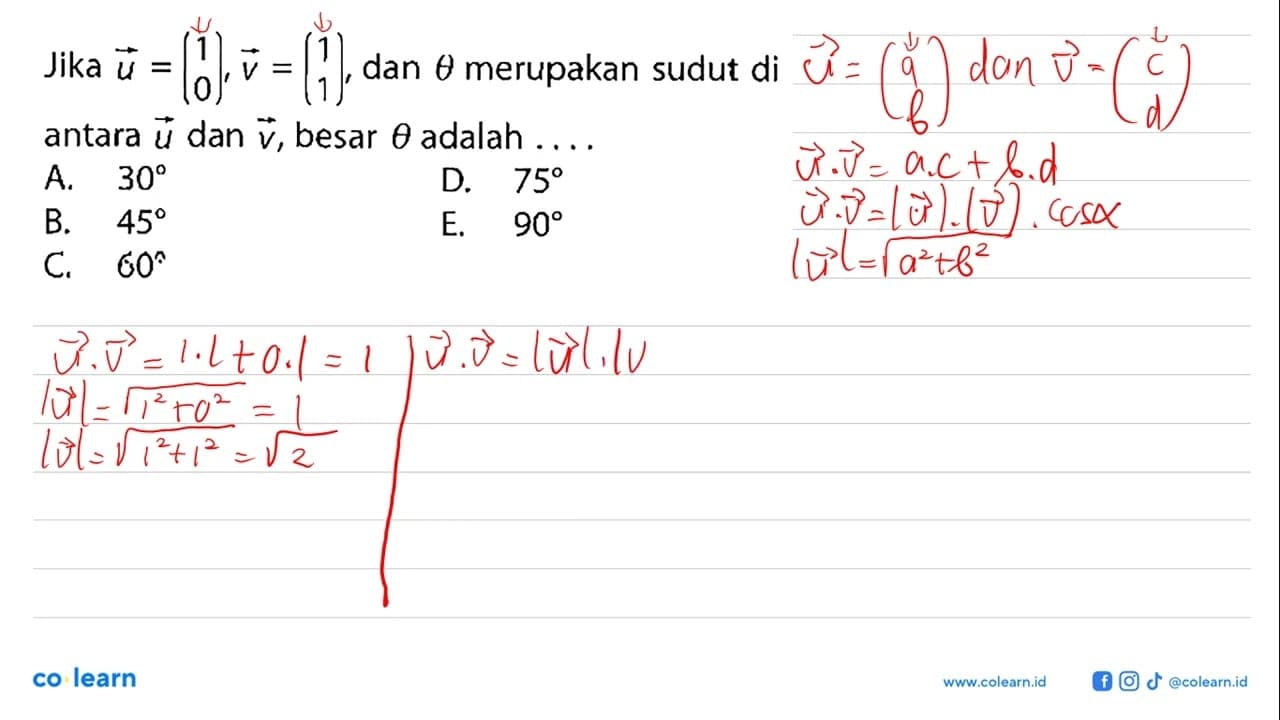 Jika u⃗ = (1 0), v⃗ = (1 1), dan θ merupakan sudut di
antara u⃗ dan v⃗, besar θ adalah ....
A. 30° D. 75°
B. 45° E. 90°
C. 60°
u⃗ = (a b) dan v⃗ = (c d)
u⃗.v⃗ = a.c + b.d
u⃗.v⃗ = |u⃗|.|v⃗|.cosα
|u⃗| = √(a²+b²)
u⃗.v⃗ = 1.1 + 0.1 = 1
|u⃗| = √(1²+0²) = 1
|v⃗| = √(1²+1²) = √2
u⃗.v⃗ = |u⃗|.|v
co learn
www.colearn.id
@colearn.id